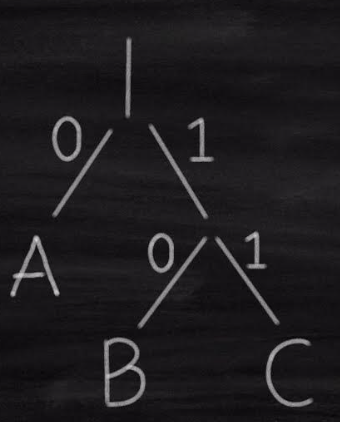 0 1
A 0 1
B C